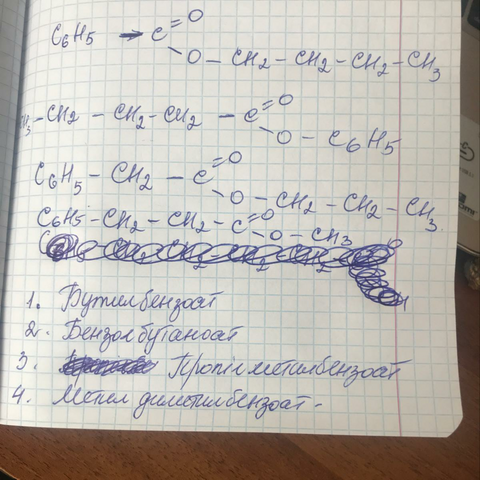 C6H5 → C =O
O – CH2 – CH2 – CH2 – CH3
CH3 – CH2 – CH2 – CH2 – C =O
O – C6H5
C6H5 – CH2 – C =O
O – CH2 – CH2 – CH3
C6H5 – CH2 – CH2 – C =O
O – CH3
1. Бутилбензоат
2. Бензолбутаноат
3. Пропілметилбензоат
4. Метил диметилбензоат.